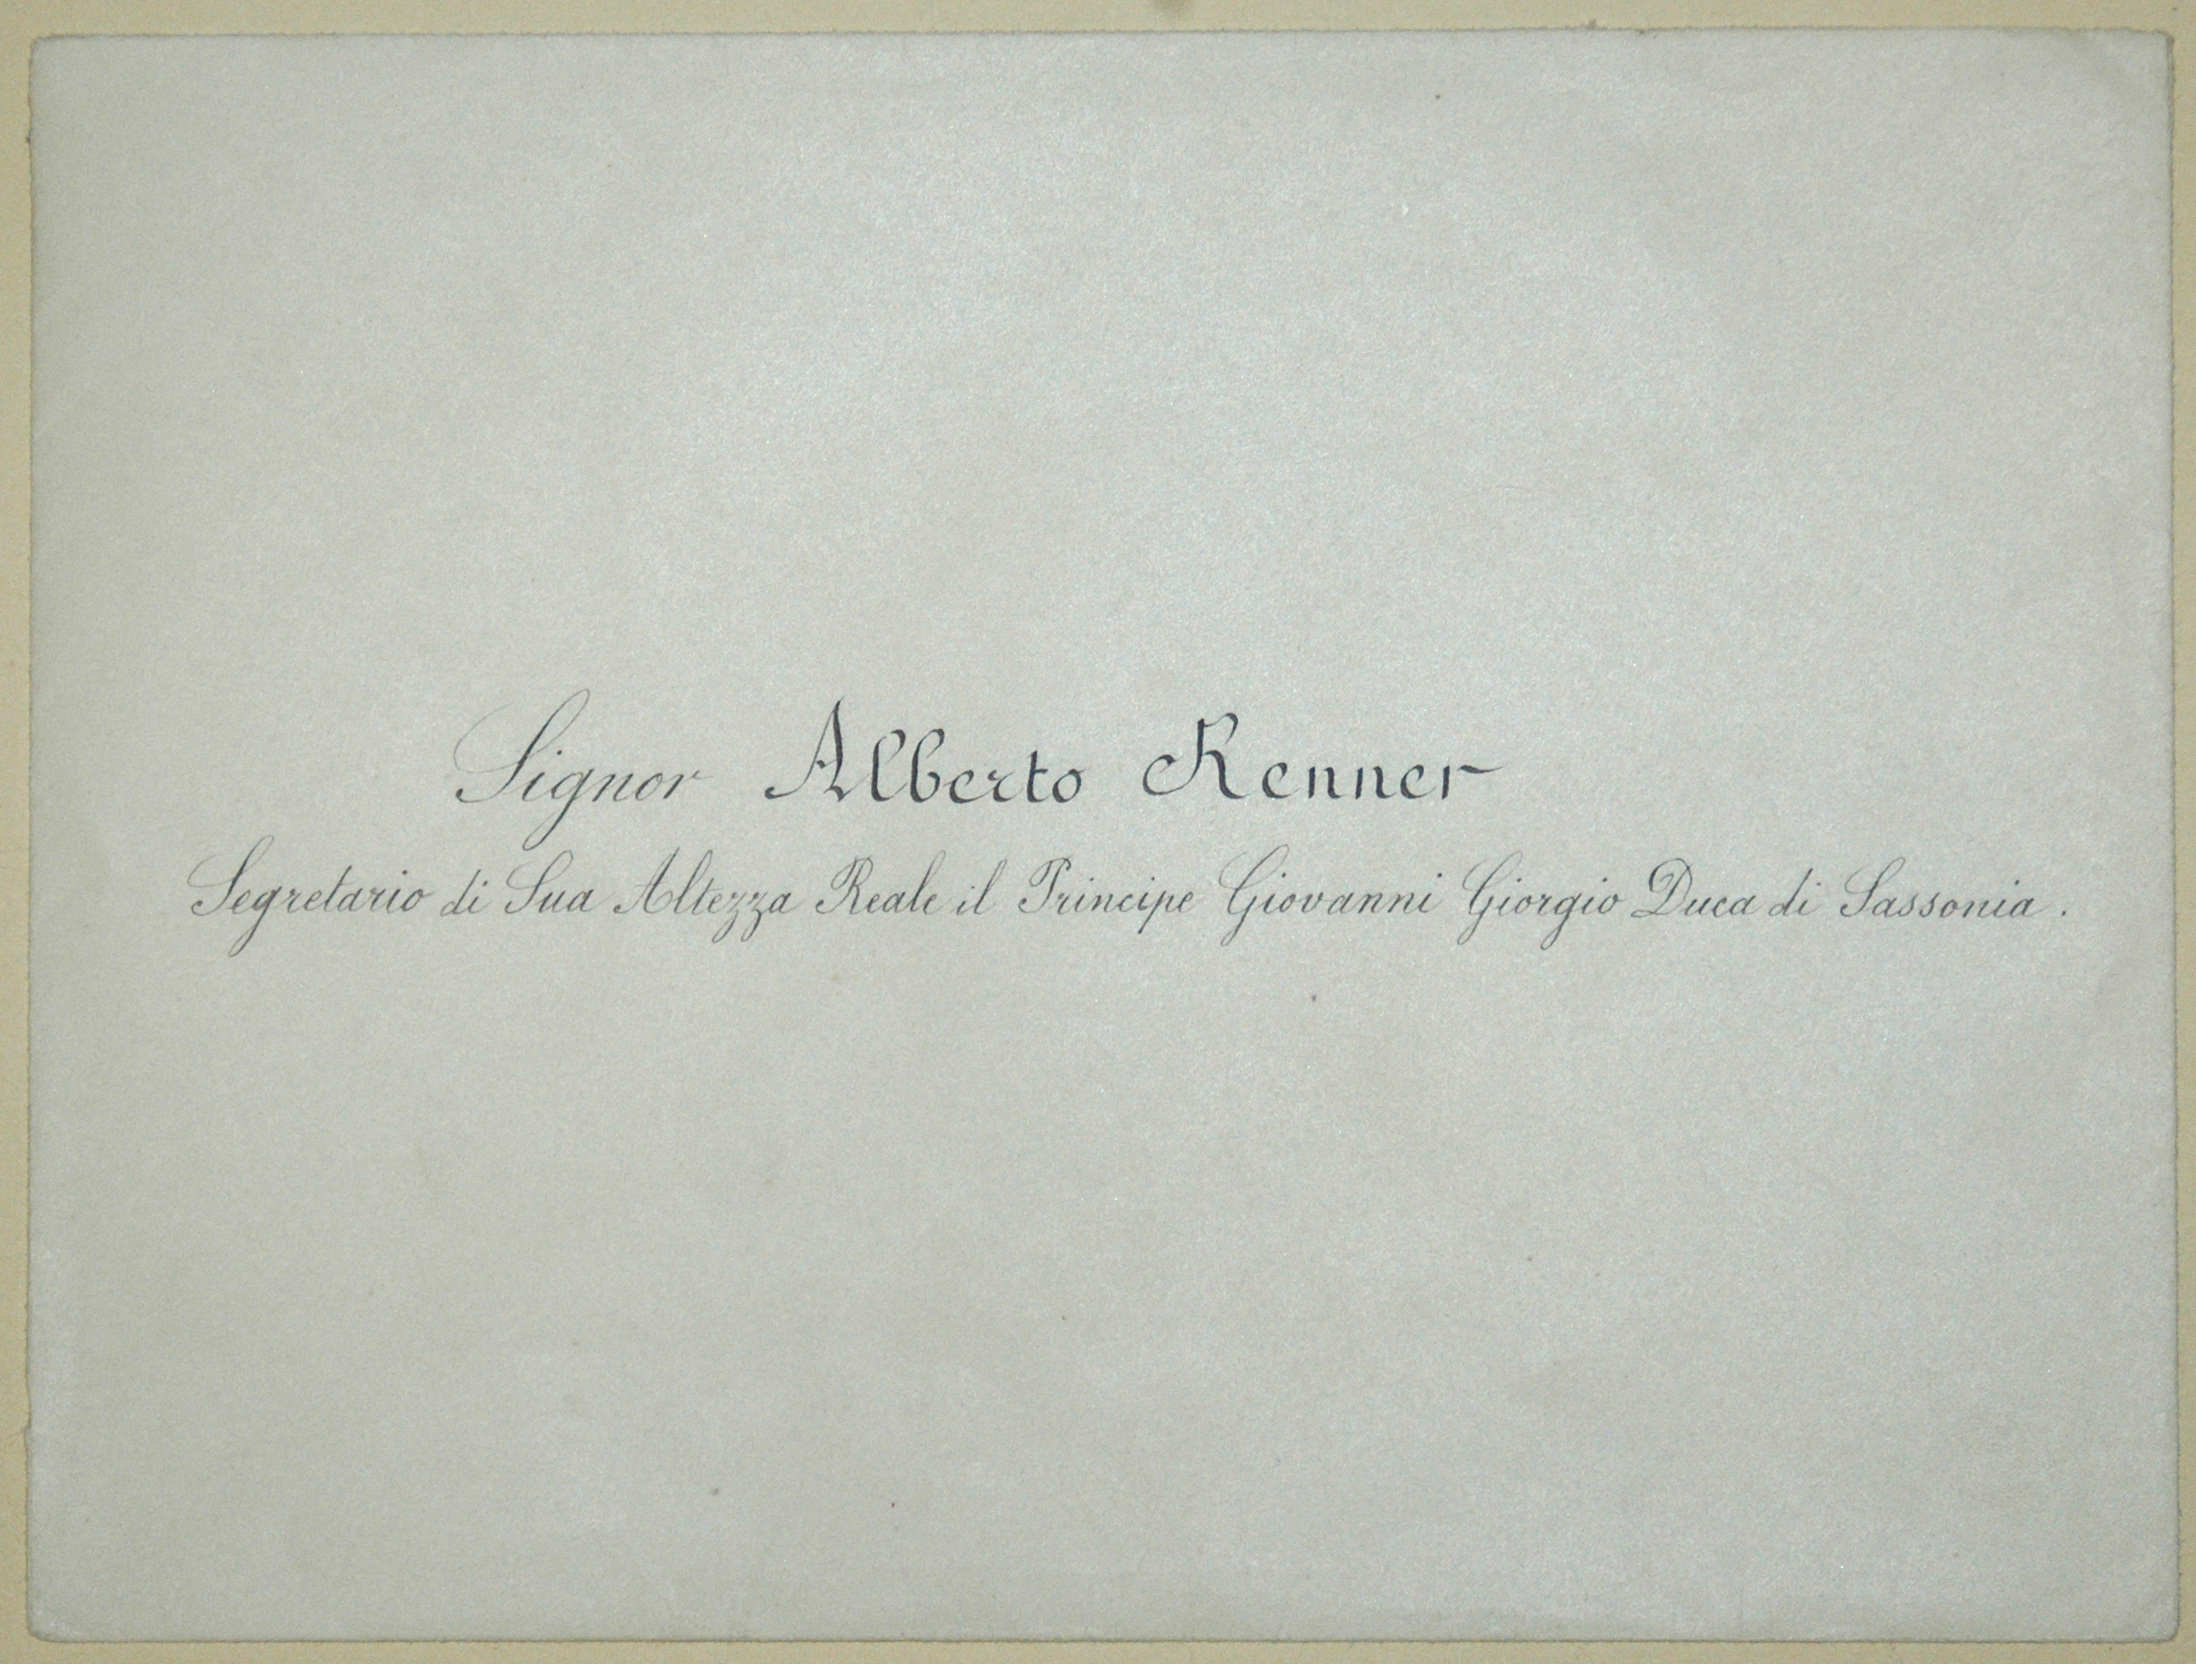 Signor Alberto Renner
Segretario di Sua Altezza Reale il Principe Giovanni Giorgio Duca di Sassonia.